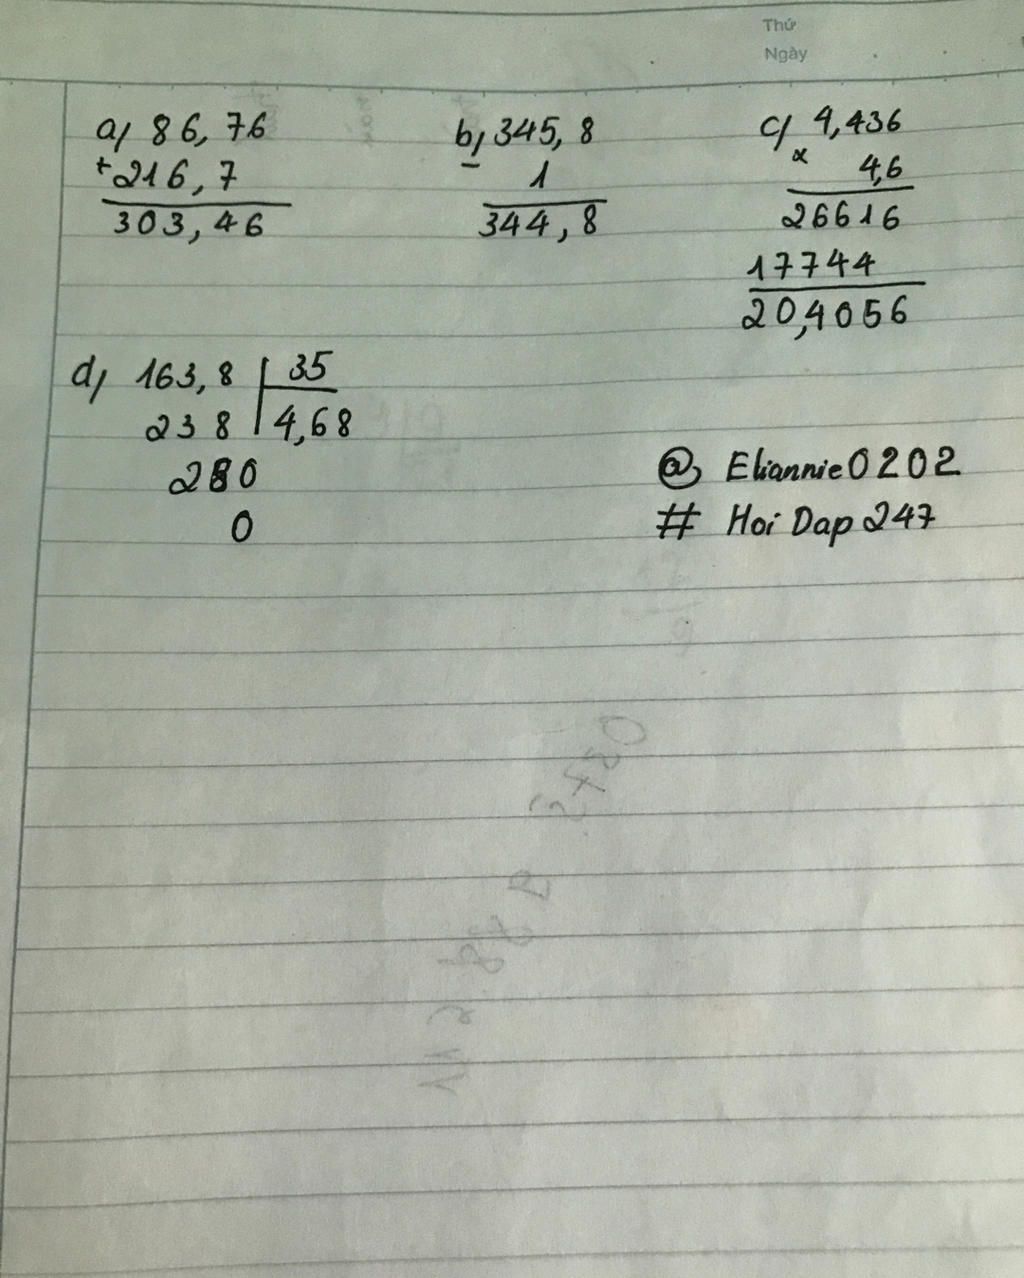 Thứ
Ngày
a) 86,76
+ 216,7
303,46
b) 345,8
- 1
344,8
c) 4,436
x 4,6
26616
17744
20,4056
d) 163,8 | 35
238 | 4,68
280
0
@ Eliannie0202
# Hoi Dap 247